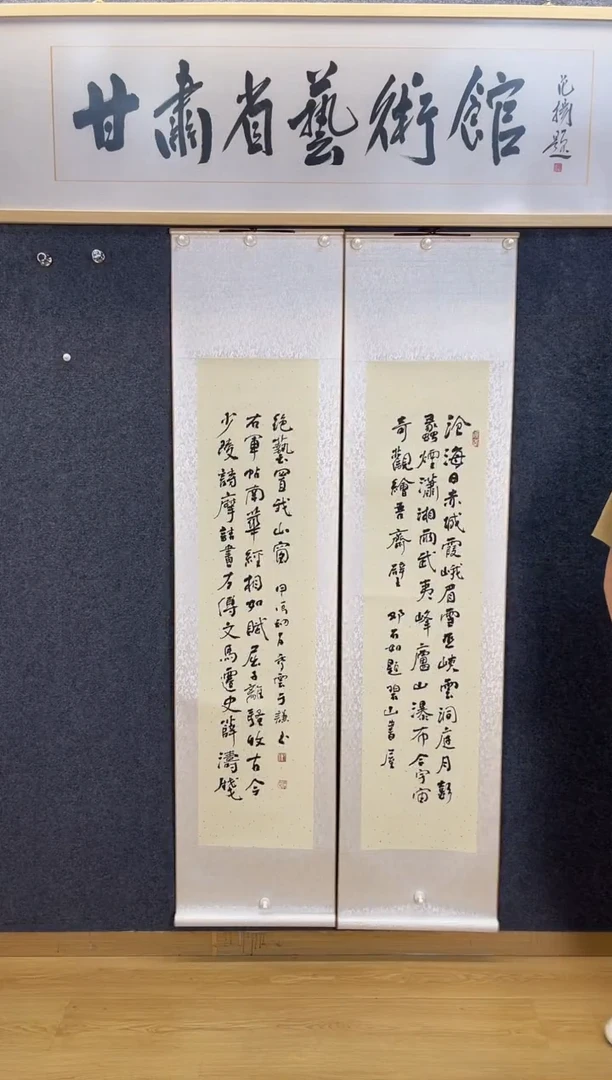 甘肅省藝術館
滄海日赤城霞峨眉雪巫峽雲洞庭月彭
蠡煙瀟湘雨武夷峰廬山瀑布合宇宙
奇觀繪吾齋壁
邓石如題碧山書屋
少陵詩摩詰畫左傳文馬遷史薛濤牋
右軍帖南華經相如賦屈子離騷收古今
絕藝置我山窗
甲辰初